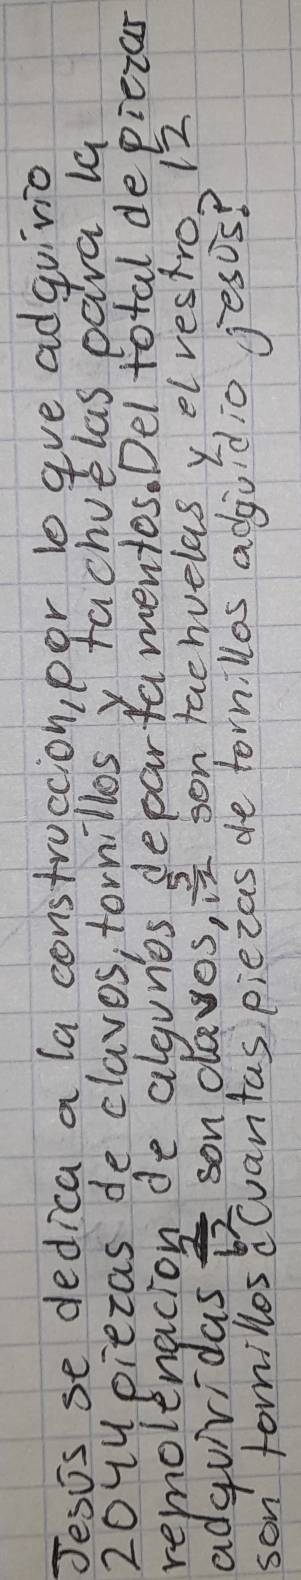 Jesús se dedica a la construccion, por lo que adquirio
2044 piezas de clavos, tornillos y tachuelas para la
remolenacion de algunos departamentos. Del total de piezas
adquiridas son clavos, 5/12 son tachuelas y el restro 1/2
son tornillos ¿Cuantas piezas de tornillos adquidio jesús?